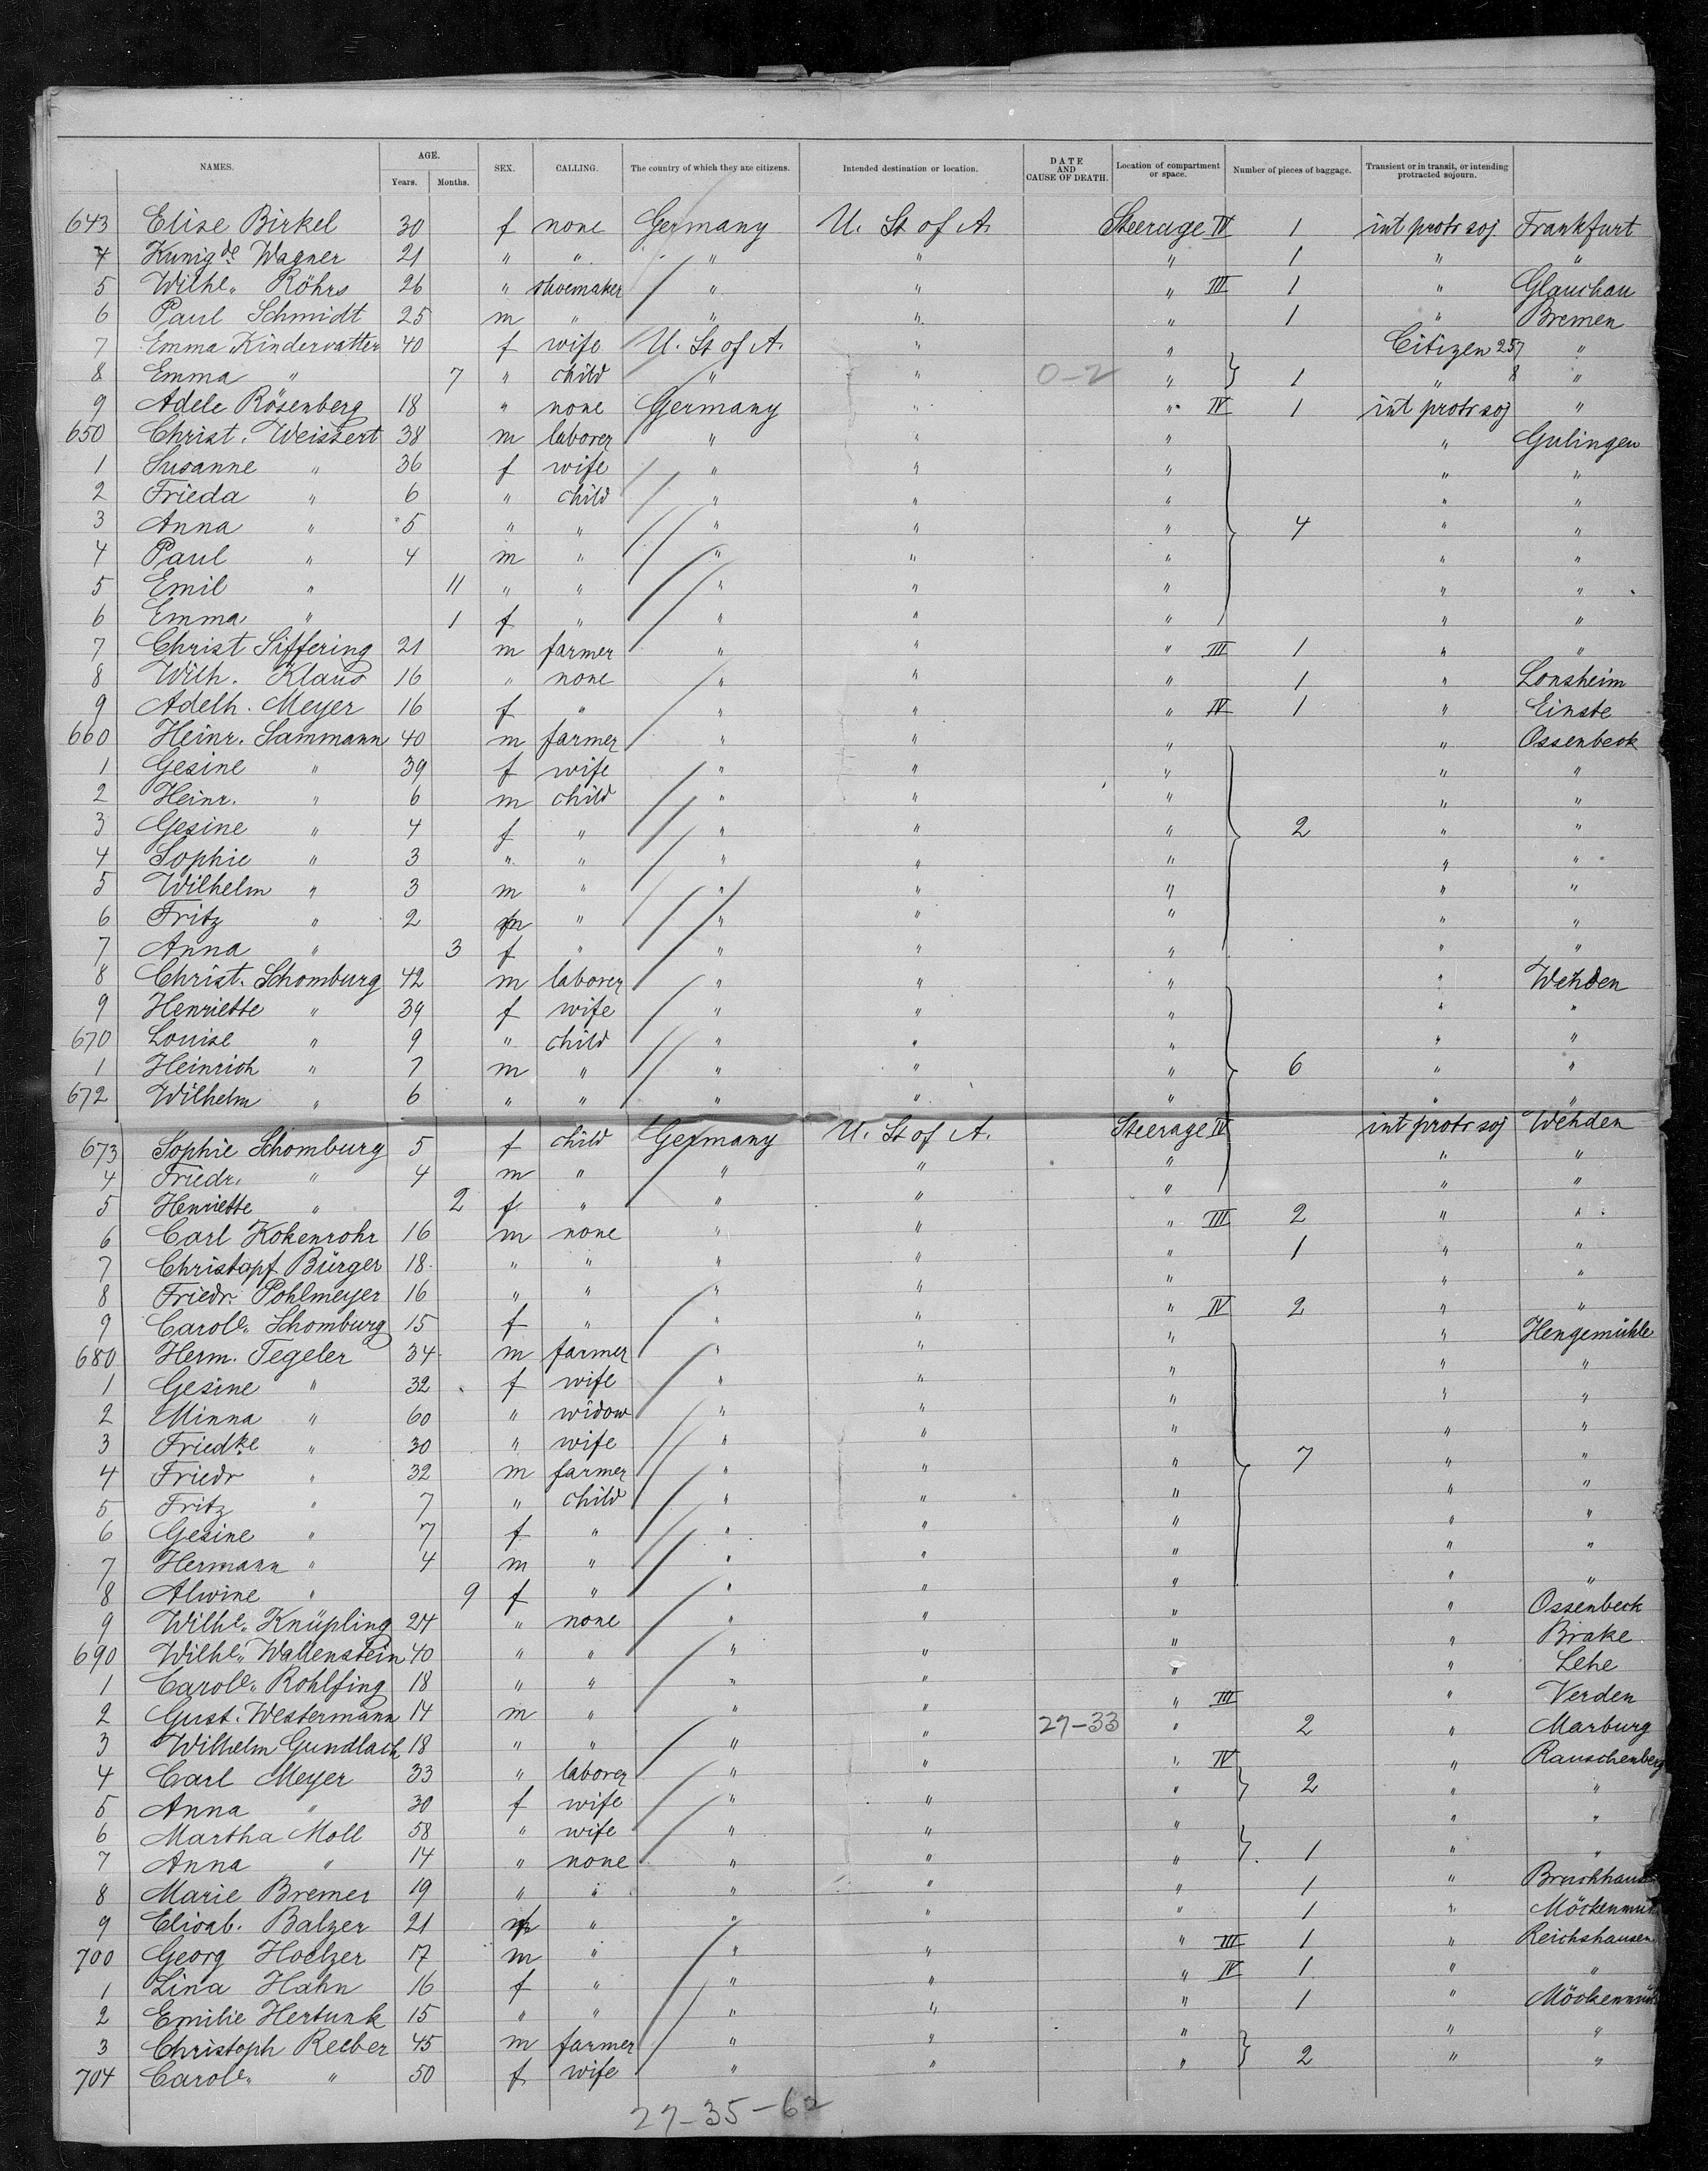 NAMES. AGE. Years. Months. SEX. CALLING. The country of which they are citizens. Intended destination or location. DATE AND CAUSE OF DEATH. Location of compartment or space. Number of pieces of baggage. Transient or in transit, or intending protracted sojourn.
643 Elise Birkel 30 f none Germany U. St of A. Steerage IV 1 int protr soj. Frankfurt
4 Kunigde Wagner 21 " " " " " 1 " "
5 Wilhe. Röhrs 26 " shoemaker " " " III 1 " Glauchau
6 Paul Schmidt 25 m " " " " 1 " Bremen
7 Emma Kindervatter 40 f wife U. St of A. " " Citizen 257 "
8 Emma " 7 " child " " 0-2 " 1 " 8 "
9 Adele Rösenberg 18 " none Germany " " IV 1 int protr soj "
650 Christ. Weissert 38 m laborer " " " " Gulingen
1 Susanne " 36 f wife " " " " "
2 Frieda " 6 " child " " " " "
3 Anna " 5 " " " " " 4 " "
4 Paul " 4 m " " " " " "
5 Emil " 11 " " " " " " "
6 Emma " 1 f " " " " " "
7 Christ Siffering 21 m farmer " " " III 1 " "
8 Wilh. Klaus 16 " none " " " 1 " Lonsheim
9 Adelh. Meyer 16 f " " " " IV 1 " Einste
660 Heinr. Sammann 40 m farmer " " " " Ossenbeck
1 Gesine " 39 f wife " " " " "
2 Heinr. " 6 m child " " " " "
3 Gesine " 4 f " " " " 2 " "
4 Sophie " 3 " " " " " " "
5 Wilhelm " 3 m " " " " " "
6 Fritz " 2 m " " " " " "
7 Anna " 3 f " " " " " "
8 Christ. Schomburg 42 m laborer " " " " Wehden
9 Henriette " 39 f wife " " " " "
670 Louise " 9 " child " " " " "
1 Heinrich " 7 m " " " " 6 " "
672 Wilhelm " 6 " " " " " " "
673 Sophie Schomburg 5 f child Germany U. St of A. Steerage IV int protr soj Wehden
4 Friedr. " 4 m " " " " " "
5 Henriette " 2 f " " " " " "
6 Carl Kokenrohr 16 m none " " " III 2 " "
7 Christopf Bürger 18 " " " " " 1 " "
8 Friedr. Pohlmeyer 16 " " " " " " "
9 Carole. Schomburg 15 f " " " " IV 2 " "
680 Herm. Tegeler 34 m farmer " " " " Hengemühle
1 Gesine " 32 f wife " " " " "
2 Minna " 60 " widow " " " " "
3 Friedke " 30 " wife " " " " "
4 Friedr " 32 m farmer " " " 7 " "
5 Fritz " 7 " child " " " " "
6 Gesine " 7 f " " " " " "
7 Hermann " 4 m " " " " " "
8 Alwine " 9 f " " " " " "
9 Wilhe. Knüpling 24 " none " " " " Ossenbeck
690 Wilhe. Wallenstein 40 " " " " " " Brake
1 Carole. Rohlfing 18 " " " " " " Lehe
2 Gust. Westermann 14 m " " " " III " Verden
3 Wilhelm Gundlach 18 " " " " 27-33 " 2 " Marburg
4 Carl Meyer 33 " laborer " " " IV " Rauschenberg
5 Anna " 30 f wife " " " 2 " "
6 Martha Moll 58 " wife " " " " "
7 Anna " 14 " none " " " 1 " "
8 Marie Bremer 19 " " " " " 1 "
9 Elisab. Balzer 21 " " " " 1 "
700 Georg Hoelzer 17 m " " " " III 1 " Reichshausen
1 Lina Hahn 16 f " " " " IV 1 " "
2 Emilie Hertunk 15 " " " " " 1 "
3 Christoph Reeber 45 m farmer " " " " "
704 Carole. " 50 f wife " " " 2 " "
27-35-62